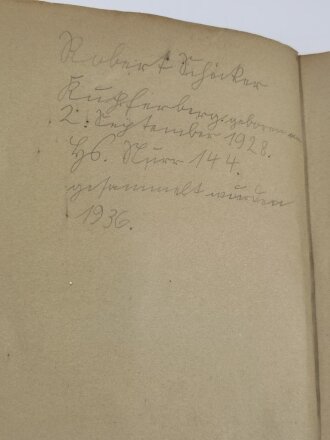 Robert Schicker
Kupferberg geboren am
2. September 1928.
Hs. Nurr 144.
gesammelt wurden
1936.